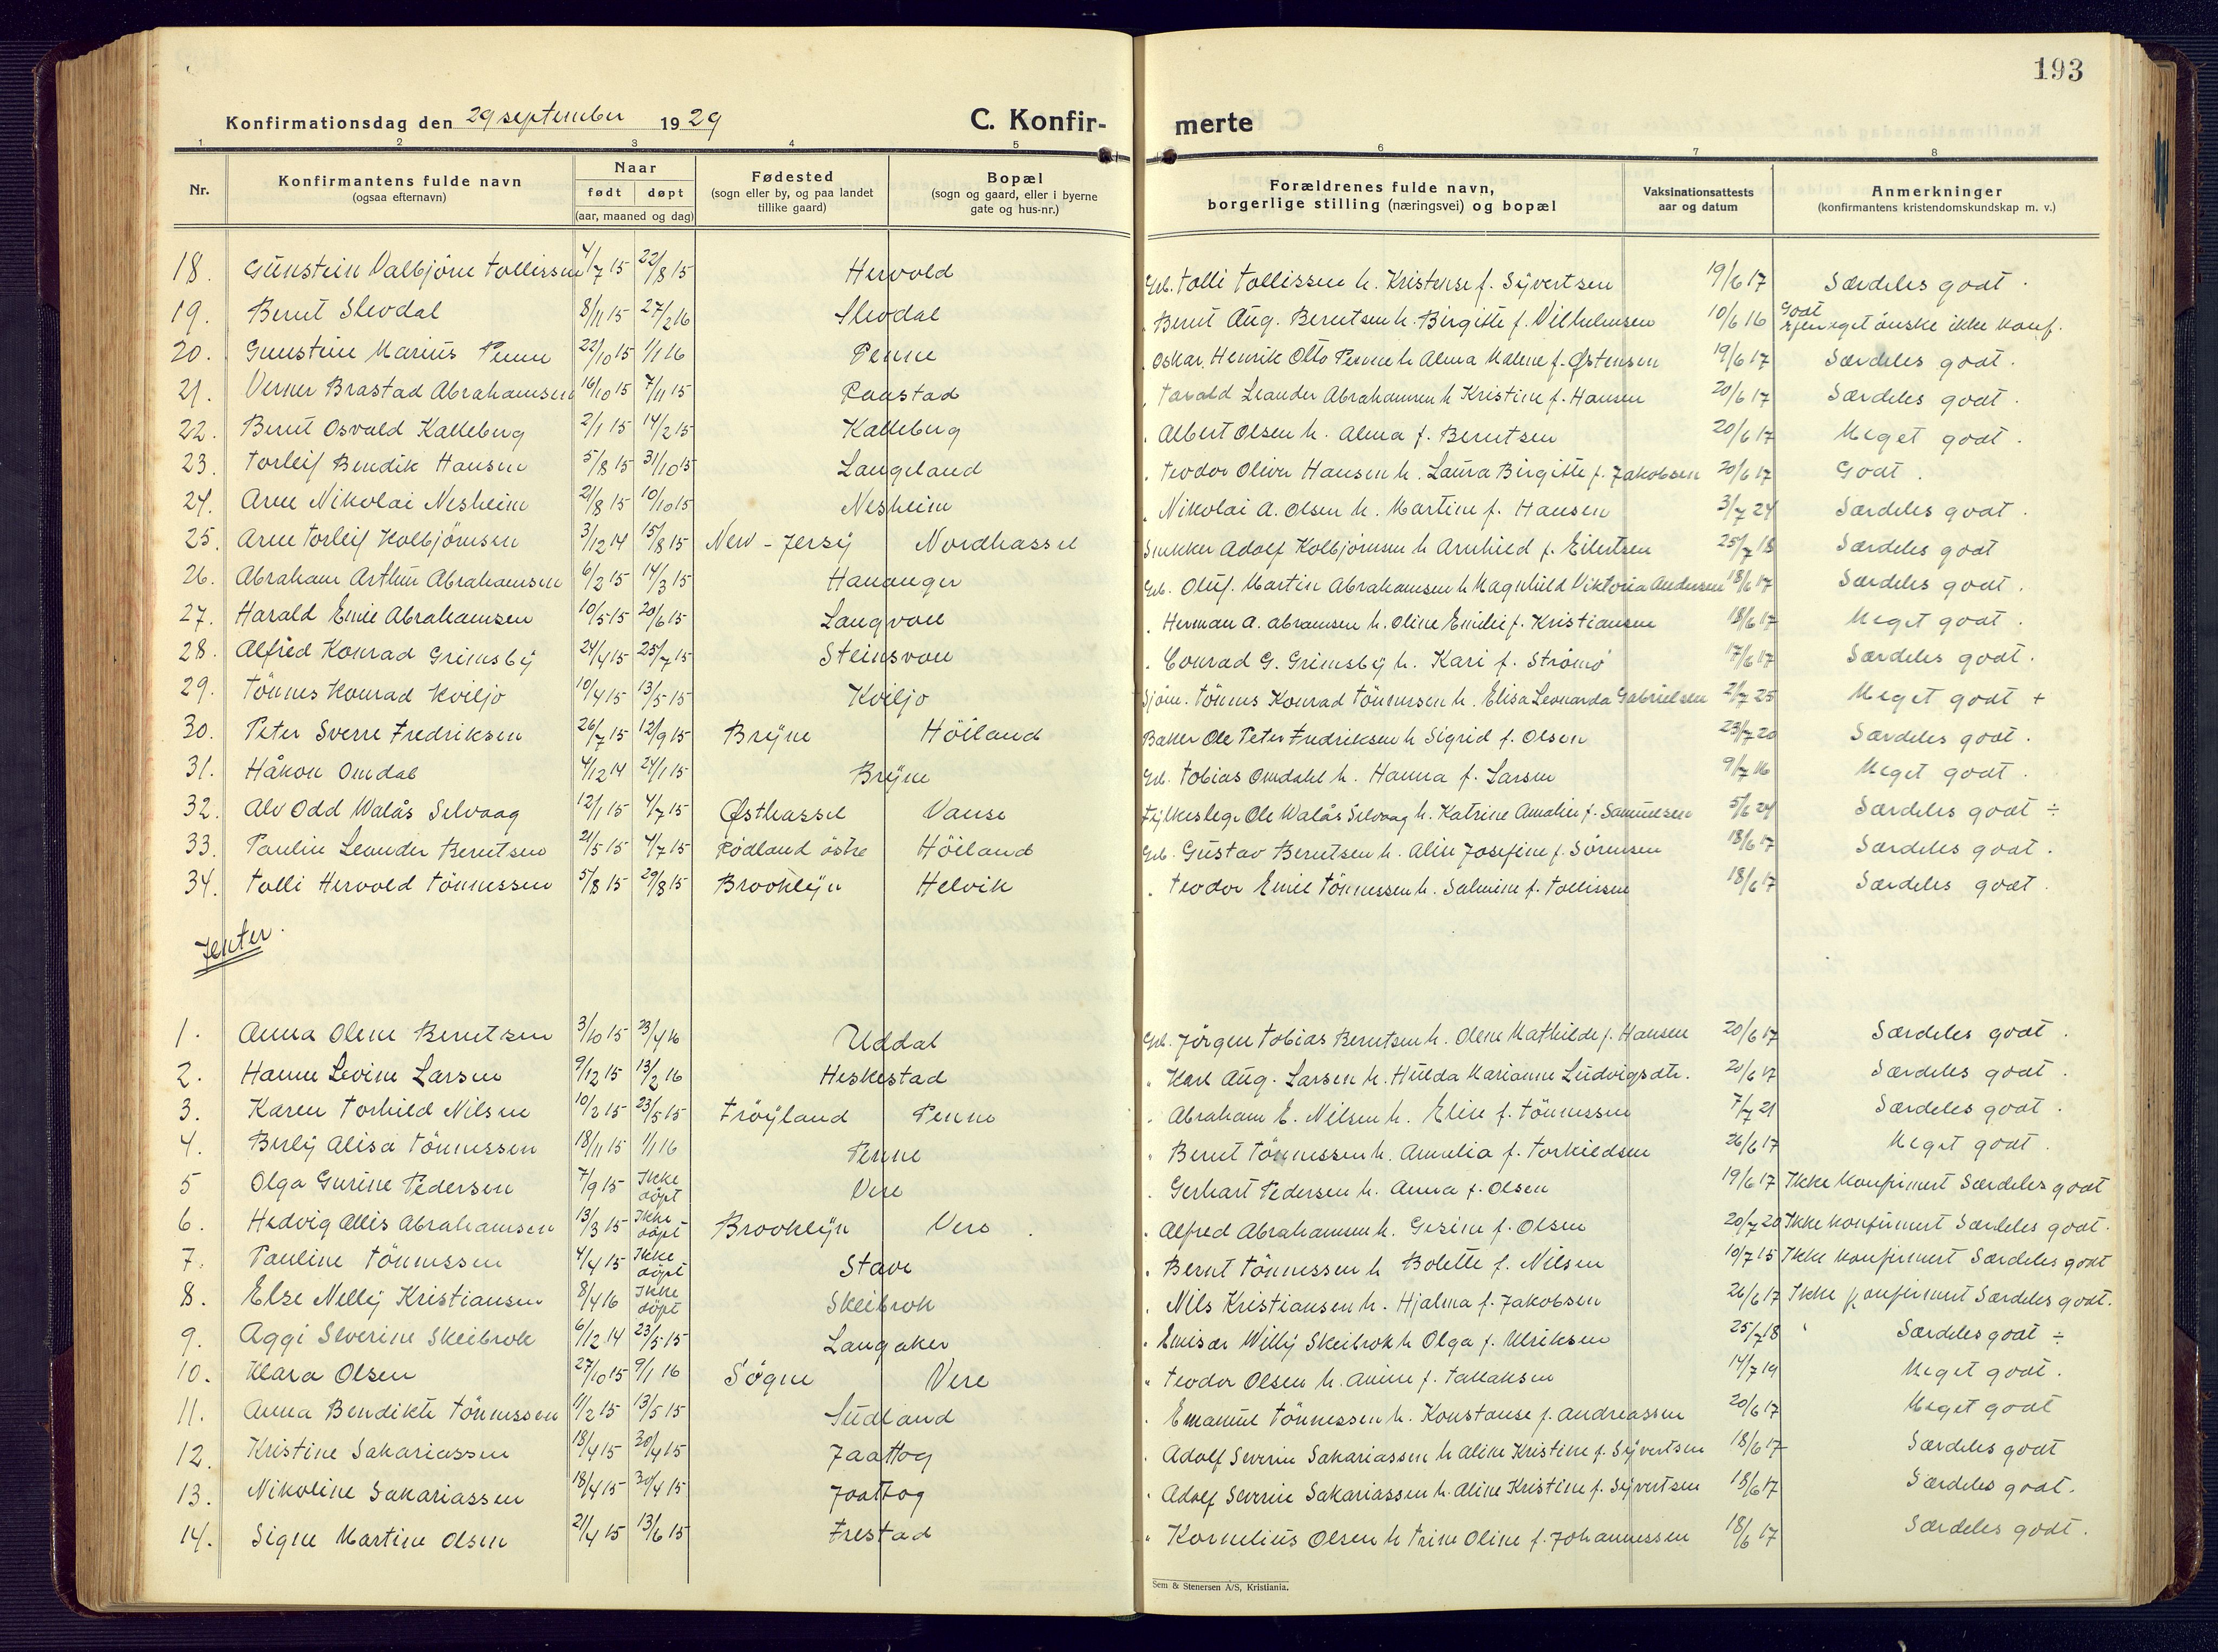 193
Konfirmationsdag den 29 september 1929 C. Konfir- merte
1 2 3 4 5 6 7 8
Nr. Konfirmantens fulde navn (ogsaa efternavn) Naar født døpt (aar, maaned og dag) Fødested (sogn eller by, og paa landet tillike gaard) Bopæl (sogn og gaard, eller i byerne gate og hus-nr.) Forældrenes fulde navn, borgerlige stilling (næringsvei) og bopæl Vaksinationsattests aar og datum Anmerkninger (konfirmantens kristendomskundskap m. v.)
18. Gunstein Valbjörn Tollissen 4/7 15 22/8 15 Hervold Grb. Tolli Tollissen h. Kristense f. Syvertsen 19/6 17 Særdeles godt.
19. Bernt Slevdal 8/11 15 27/2 16 Slevdal Bernt Aug. Berntsen h. Birgitte f. Vilhelmsen 10/6 16 Godt Efter eget önske ikke konf.
20. Gunstein Marius Penne 22/10 15 1/1 16 Penne Oskar Henrik Otto Penne h. Alma Malene f. Østensen 19/6 17 Særdeles godt.
21. Verner Brastad Abrahamsen 16/10 15 7/11 15 Raastad Tarald Leander Abrahamsen h. Kristine f. Hansen 20/6 17 Særdeles godt.
22. Bernt Osvald Kalleberg 2/1 15 14/2 15 Kalleberg Albert Olsen h. Alma f. Berntsen 20/6 17 Meget godt.
23. Torleif Bendik Hansen 5/8 15 31/10 15 Langeland Teodor Oliver Hansen h. Laura Birgitte f. Jakobsen 20/6 17 Godt.
24. Arne Nikolai Nesheim 21/8 15 10/10 15 Nesheim Nikolai A. Olsen h. Martine f. Hansen 3/7 24 Særdeles godt.
25. Arne Torleif Kolbjörnsen 3/12 14 15/8 15 New-Jersy Nordhassel Snekker Adolf Kolbjörnsen h. Arnhild f. Eilertsen 25/7 18 Særdeles godt
26. Abraham Arthur Abrahamsen 6/2 15 14/3 15 Hananger Grb. Oluf Martin Abrahamsen h. Magnhild Viktoria Andersen 18/6 17 Særdeles godt.
27. Harald Emil Abrahamsen 10/5 15 20/6 15 Langvon Herman A. Abramsen h. Oline Emilie f. Kristiansen 18/6 17 Meget godt.
28. Alfred Konrad Grimsby 24/4 15 25/7 15 Steinsvon Conrad G. Grimsby h. Kari f. Strömö 17/6 17 Særdeles godt.
29. Tönnes Konrad Kviljo 10/4 15 13/5 15 Kviljo Sjöm. Tönnes Konrad Tönnessen h. Elisa Leonarda Gabrielsen 2/7 25 Meget godt +
30. Peter Sverre Fredriksen 26/7 15 12/9 15 Bryne Höiland Baker Ole Peter Fredriksen h. Sigrid f. Olsen 23/7 20 Særdeles godt.
31. Håkon Omdal 4/12 14 24/1 15 Bryne Grb. Tobias Omdahl h. Hanna f. Larsen 9/7 16 Meget godt.
32. Alv Odd Walås Selvaag 12/1 15 4/7 15 Østhassel Vanse Fylkeslege Ole Walås Selvaag h. Katrine Amalie f. Samuelsen 5/6 24 Særdeles godt ÷
33. Paulin Leander Berntsen 21/5 15 4/7 15 Rødland östre Höiland Grb. Gustav Berntsen h. Aline Josefine f. Sörensen 18/6 17 Særdeles godt.
34. Tolli Hervold Tönnessen 5/8 15 29/8 15 Brooklyn Helvik Teodor Emil Tönnessen h. Salmine f. Tollissen 18/6 17 Særdeles godt.
Jenter.
1. Anna Olene Berntsen 3/10 15 23/4 16 Uddal Grb. Jörgen Tobias Berntsen h. Olene Mathilde f. Hansen 20/6 17 Særdeles godt.
2. Hanne Levine Larsen 9/12 15 13/2 16 Heskestad " Karl Aug. Larsen h. Hulda Marianne Ludvigsdtr. 20/6 17 Særdeles godt.
3. Karen Torhild Nilsen 10/2 15 23/5 15 Tröyland Penne Abraham E. Nilsen h. Elise f. Tönnessen 7/7 21 Særdeles godt.
4. Berly Alisa Tönnessen 18/11 15 1/1 16 Penne " Bernt Tönnessen h. Amalia f. Torkildsen 26/6 17 Meget godt.
5 Olga Gurine Pedersen 7/9 15 Ikke döpt Vere Gerhart Pedersen h. Anna f. Olsen 19/6 17 Ikke konfirmert Særdeles godt
6. Hedvig Allis Abrahamsen 13/3 15 Ikke döpt Brooklyn Vere Alfred Abrahamsen h. Gesine f. Olsen 20/7 20 Ikke konfirmert Særdeles godt.
7. Pauline Tönnessen 4/4 15 Ikke döpt Stave Bernt Tönnessen h Bolette f. Nilsen 10/7 15 Ikke konfirmert Særdeles godt
8. Else Nelly Kristiansen 8/4 16 Ikke döpt Skeibrok Nils Kristiansen h. Hjalma f. Jakobsen 26/6 17 Ikke konfirmert Særdeles godt.
9. Aggi Severine Skeibrok 6/12 14 23/5 15 Langaker Emisær Willy Skeibrok h Olga f. Ulriksen 25/7 18 Særdeles godt ÷
10. Klara Olsen 27/10 15 9/1 16 Sögne Vere " Teodor Olsen h. Amine f. Tallaksen 14/7 19 Meget godt.
11. Anna Bendikte Tönnessen 11/2 15 13/5 15 Sudland Emanuel Tönnessen h. Konstanse f. Andreassen 20/6 17 Meget godt
12. Kristine Sakariassen 18/4 15 30/4 15 Jaattog Adolf Severin Sakariassen h Aline Kristine f. Syvertsen 18/6 17 Særdeles godt
13. Nikoline Sakariassen 18/4 15 30/4 15 Jaattog " Adolf Severin Sakariassen h. Aline Kristine f. Syvertsen 18/6 17 Særdeles godt.
14. Signe Martine Olsen 21/4 15 13/6 15 Trestad " Kornelius Olsen h Trine Oline f. Johannessen 18/6 17 Særdeles godt.
Sem & Stenersen A/S, Kristiania.